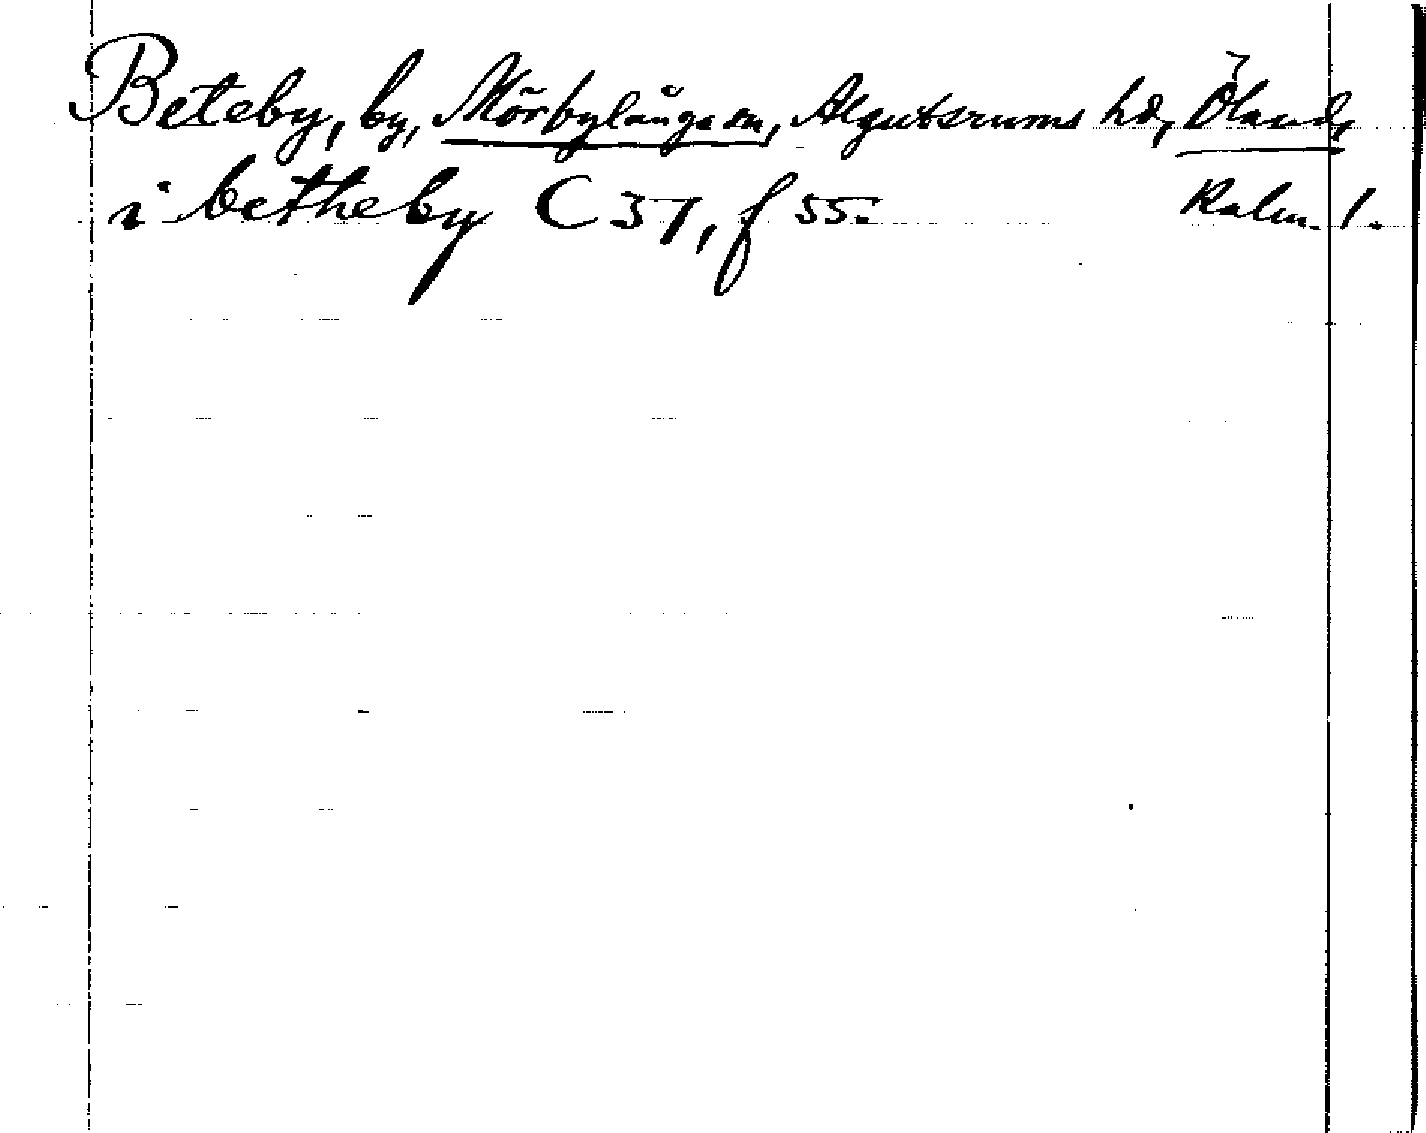 Beteby, by, Mörbylånga sn, Algutsrums hd, Öland,
i betheby C 37, f 55. Kalm. l.